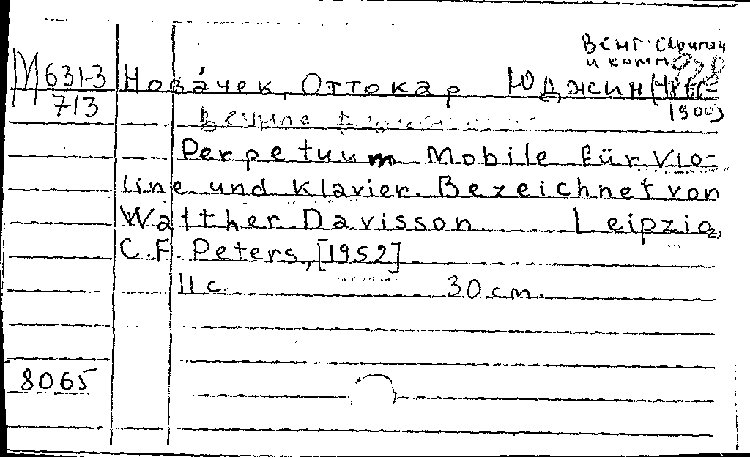 Венг. скрипач
и комп.
М 631-3
713
Нова́чек, Оттокар Юджин
1900)
Perpetuum Mobile für Vio-
line und Klavier. Bezeichnet von
Walther Davisson Leipzig,
C.F. Peters, [1952]
11 с. 30 cm.
8065